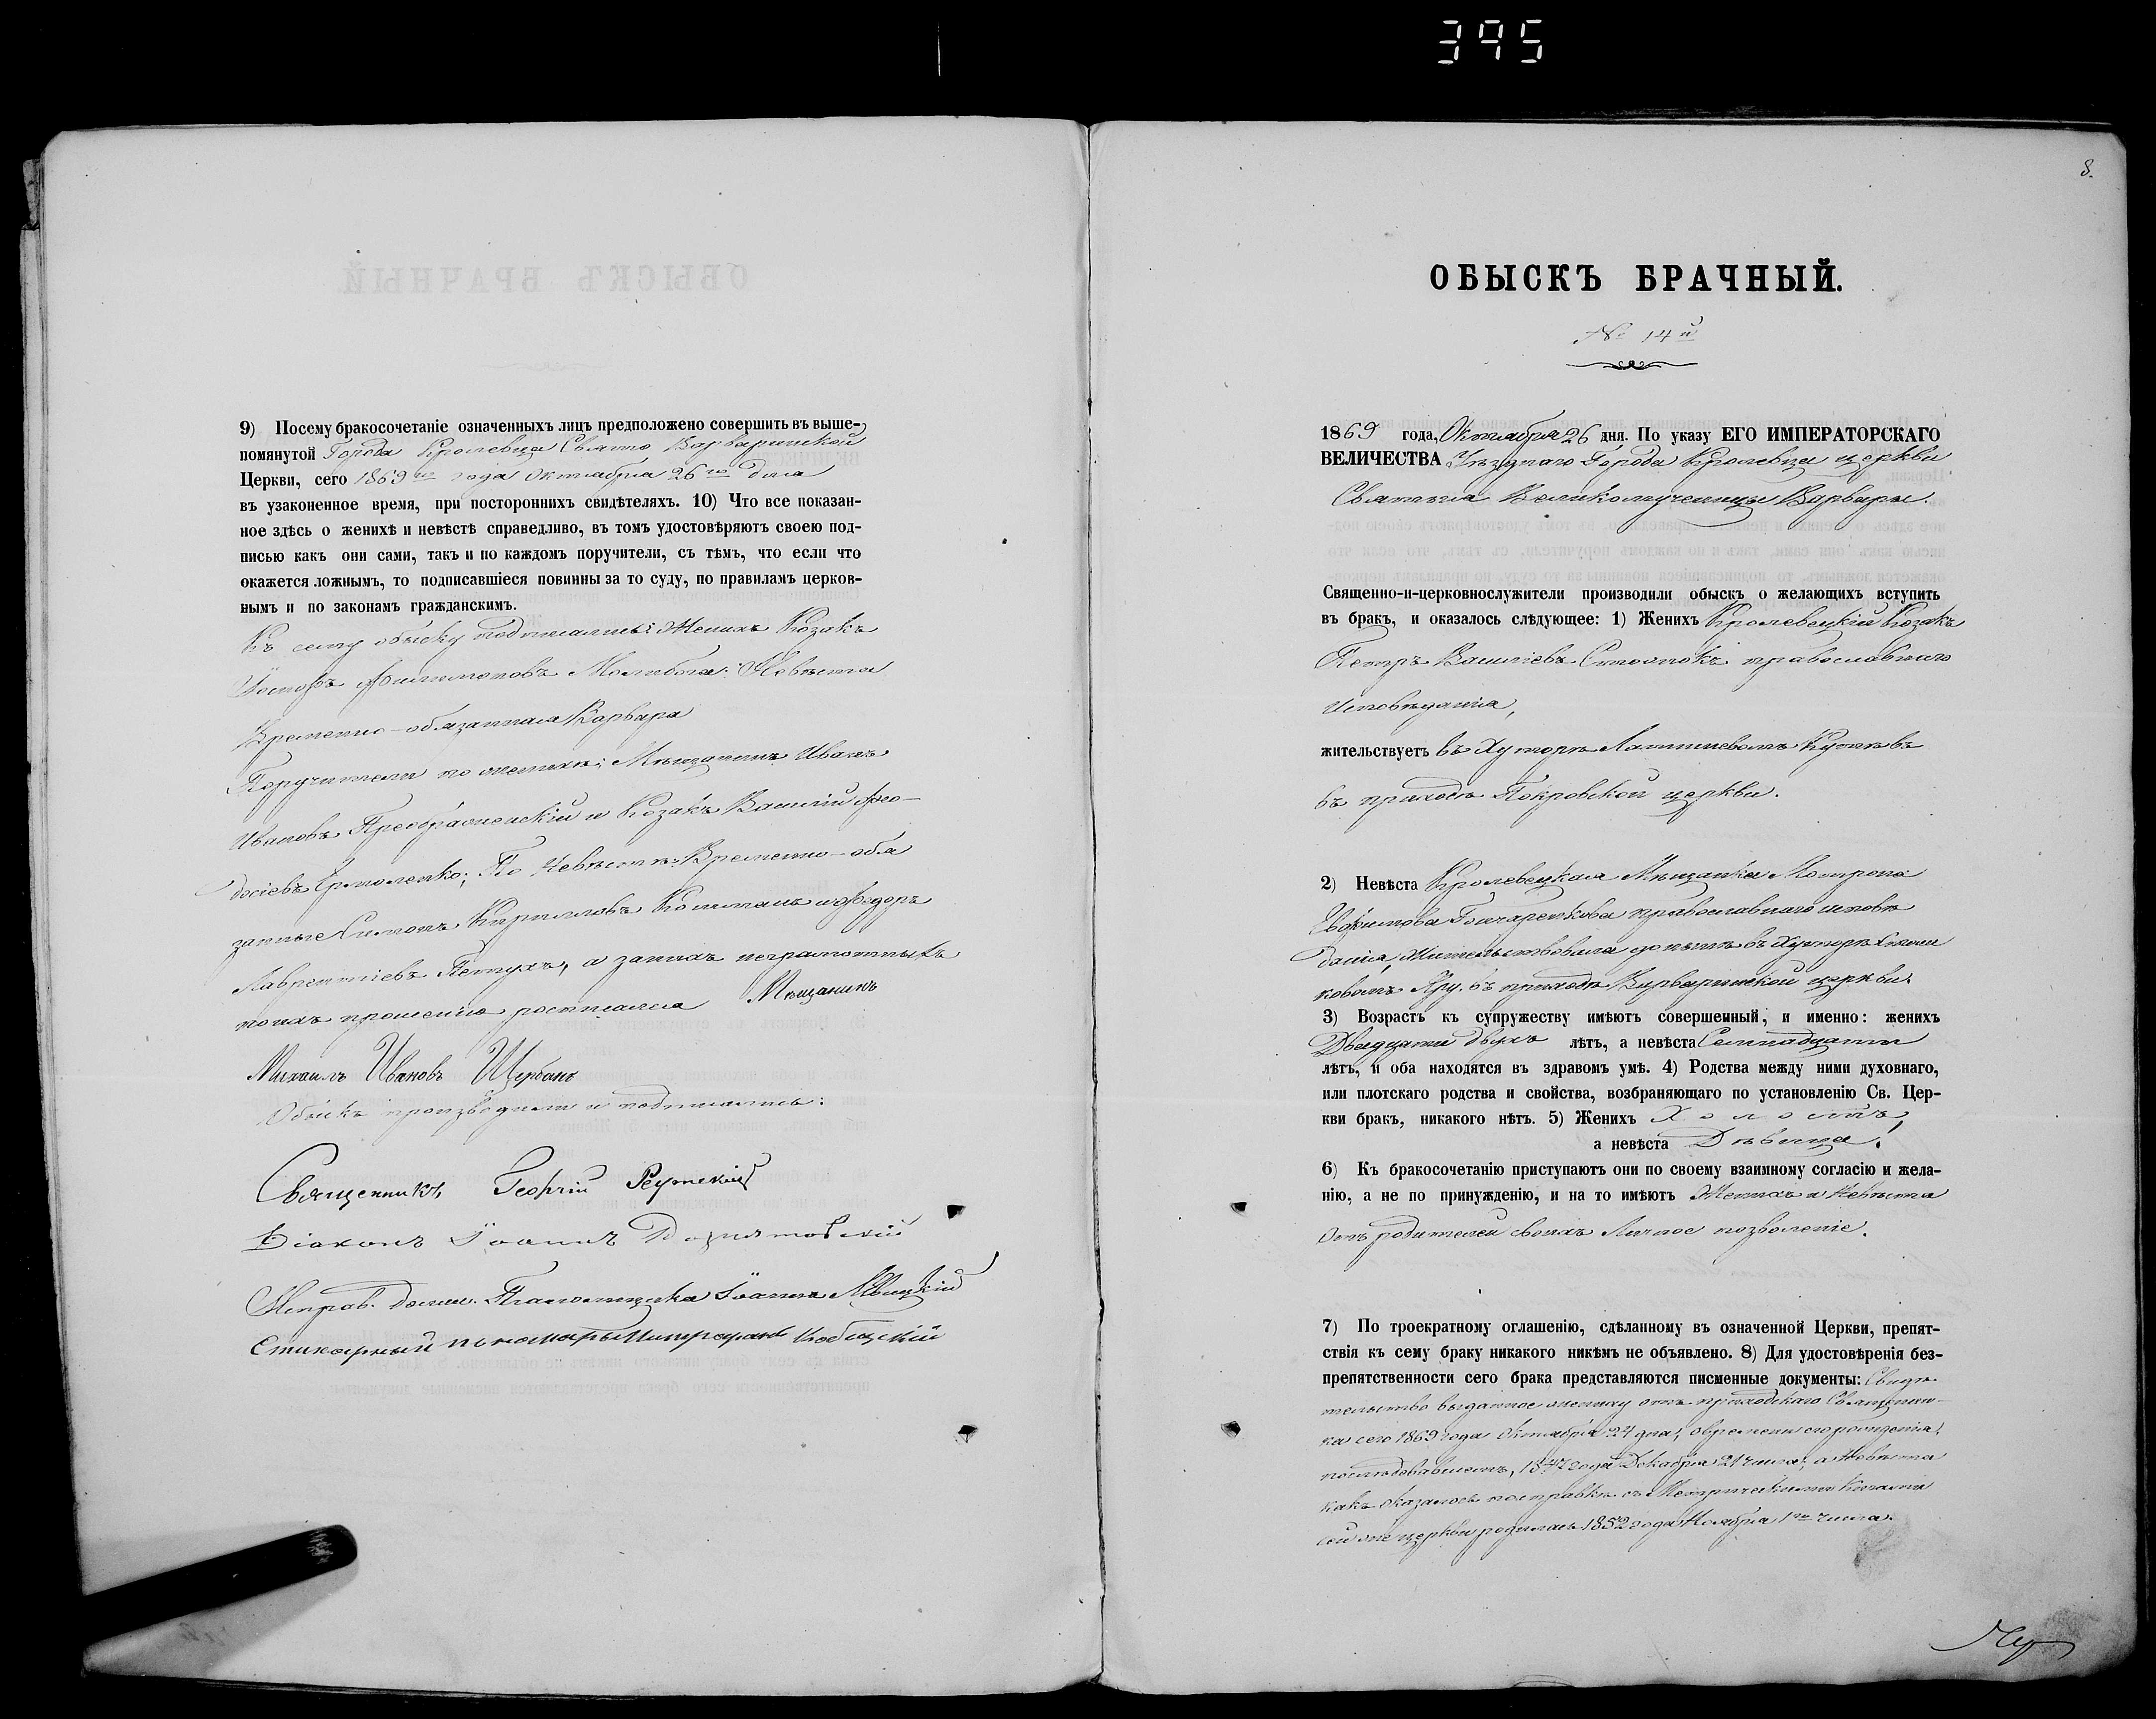 395
9) Посему бракосочетаніе означенныхъ лицъ предположено совершить въ выше-
помянутой Города Кролевца Свято Варваринской
Церкви, сего 1869го года Октября 26го дня
въ узаконенное время, при постороннихъ свидѣтеляхъ. 10) Что все показан-
ное здѣсь о женихѣ и невѣстѣ справедливо, въ томъ удостовѣряютъ своею под-
писью какъ они сами, такъ и по каждомъ поручители, съ тѣмъ, что если что
окажется ложнымъ, то подписавшіеся повинны за то суду, по правиламъ церков-
нымъ и по законамъ гражданскимъ.
Къ сему обыску подписались: Женихъ Козакъ
Филимоновъ Молибога: Невѣста
Временно-обязанная Варвара
Поручители по женихѣ: Мѣщанинъ Иванъ
Ивановъ Преображенскій и Козакъ Василій Ѳео-
досіевъ Ермоленко; По Невѣстѣ: Временно-обя
занные Симонъ Кирилловъ и Федоръ
Лаврентіевъ Петухъ, а за нихъ неграмотныхъ
по ихъ прошенію росписался Мѣщанинъ
Михаилъ Ивановъ Щербакъ
Обыскъ производили и подписались:
Священникъ Георгій
Діаконъ Іоаннъ
Исправ. долж. Псаломщика Іоаннъ
Стихарный пономарь Митрофанъ
8.
ОБЫСКЪ БРАЧНЫЙ.
№ 14й
1869 года, Октября 26 дня. По указу ЕГО ИМПЕРАТОРСКАГО
ВЕЛИЧЕСТВА Уѣзднаго Города Кролевца церкви
Святыя Великомученицы Варвары.
Священно-и-церковнослужители производили обыскъ о желающихъ вступить
въ бракъ, и оказалось слѣдующее: 1) Женихъ Кролевецкій Козакъ
Петръ Василіевъ православнаго
исповѣданія,
жительствуетъ въ Хуторѣ
въ приходѣ Покровской церкви.
2) Невѣста Кролевецкая Мѣщанка Мотрона
Евфимова Гончаренкова православнаго исповѣ
данія, жительствовала донынѣ въ Хуторѣ
въ приходѣ Варваринской церкви.
3) Возрастъ къ супружеству имѣютъ совершенный, и именно: женихъ
Двадцати двухъ лѣтъ, а невѣста Семнадцати
лѣтъ, и оба находятся въ здравомъ умѣ. 4) Родства между ними духовнаго,
или плотскаго родства и свойства, возбраняющаго по установленію Св. Цер-
кви бракъ, никакого нѣтъ. 5) Женихъ Холостъ,
а невѣста Дѣвица.
6) Къ бракосочетанію приступаютъ они по своему взаимному согласію и жела-
нію, а не по принужденію, и на то имѣютъ Женихъ и Невѣста
Отъ родителей своихъ Личное позволеніе.
7) По троекратному оглашенію, сдѣланному въ означенной Церкви, препят-
ствія къ сему браку никакого никѣмъ не объявлено. 8) Для удостовѣренія без-
препятственности сего брака представляются писменные документы: Свидѣ-
тельство выданное жениху отъ приходскаго Священни-
ка сего 1869 года Октября 24 дня, о времени его рожденія,
послѣдовавшемъ, 1847 года Декабря 21 числа, а Невѣста
какъ оказалось по справкѣ съ Метрическими Книгами
сей же церкви родилась 1852 года Ноября 1го числа.